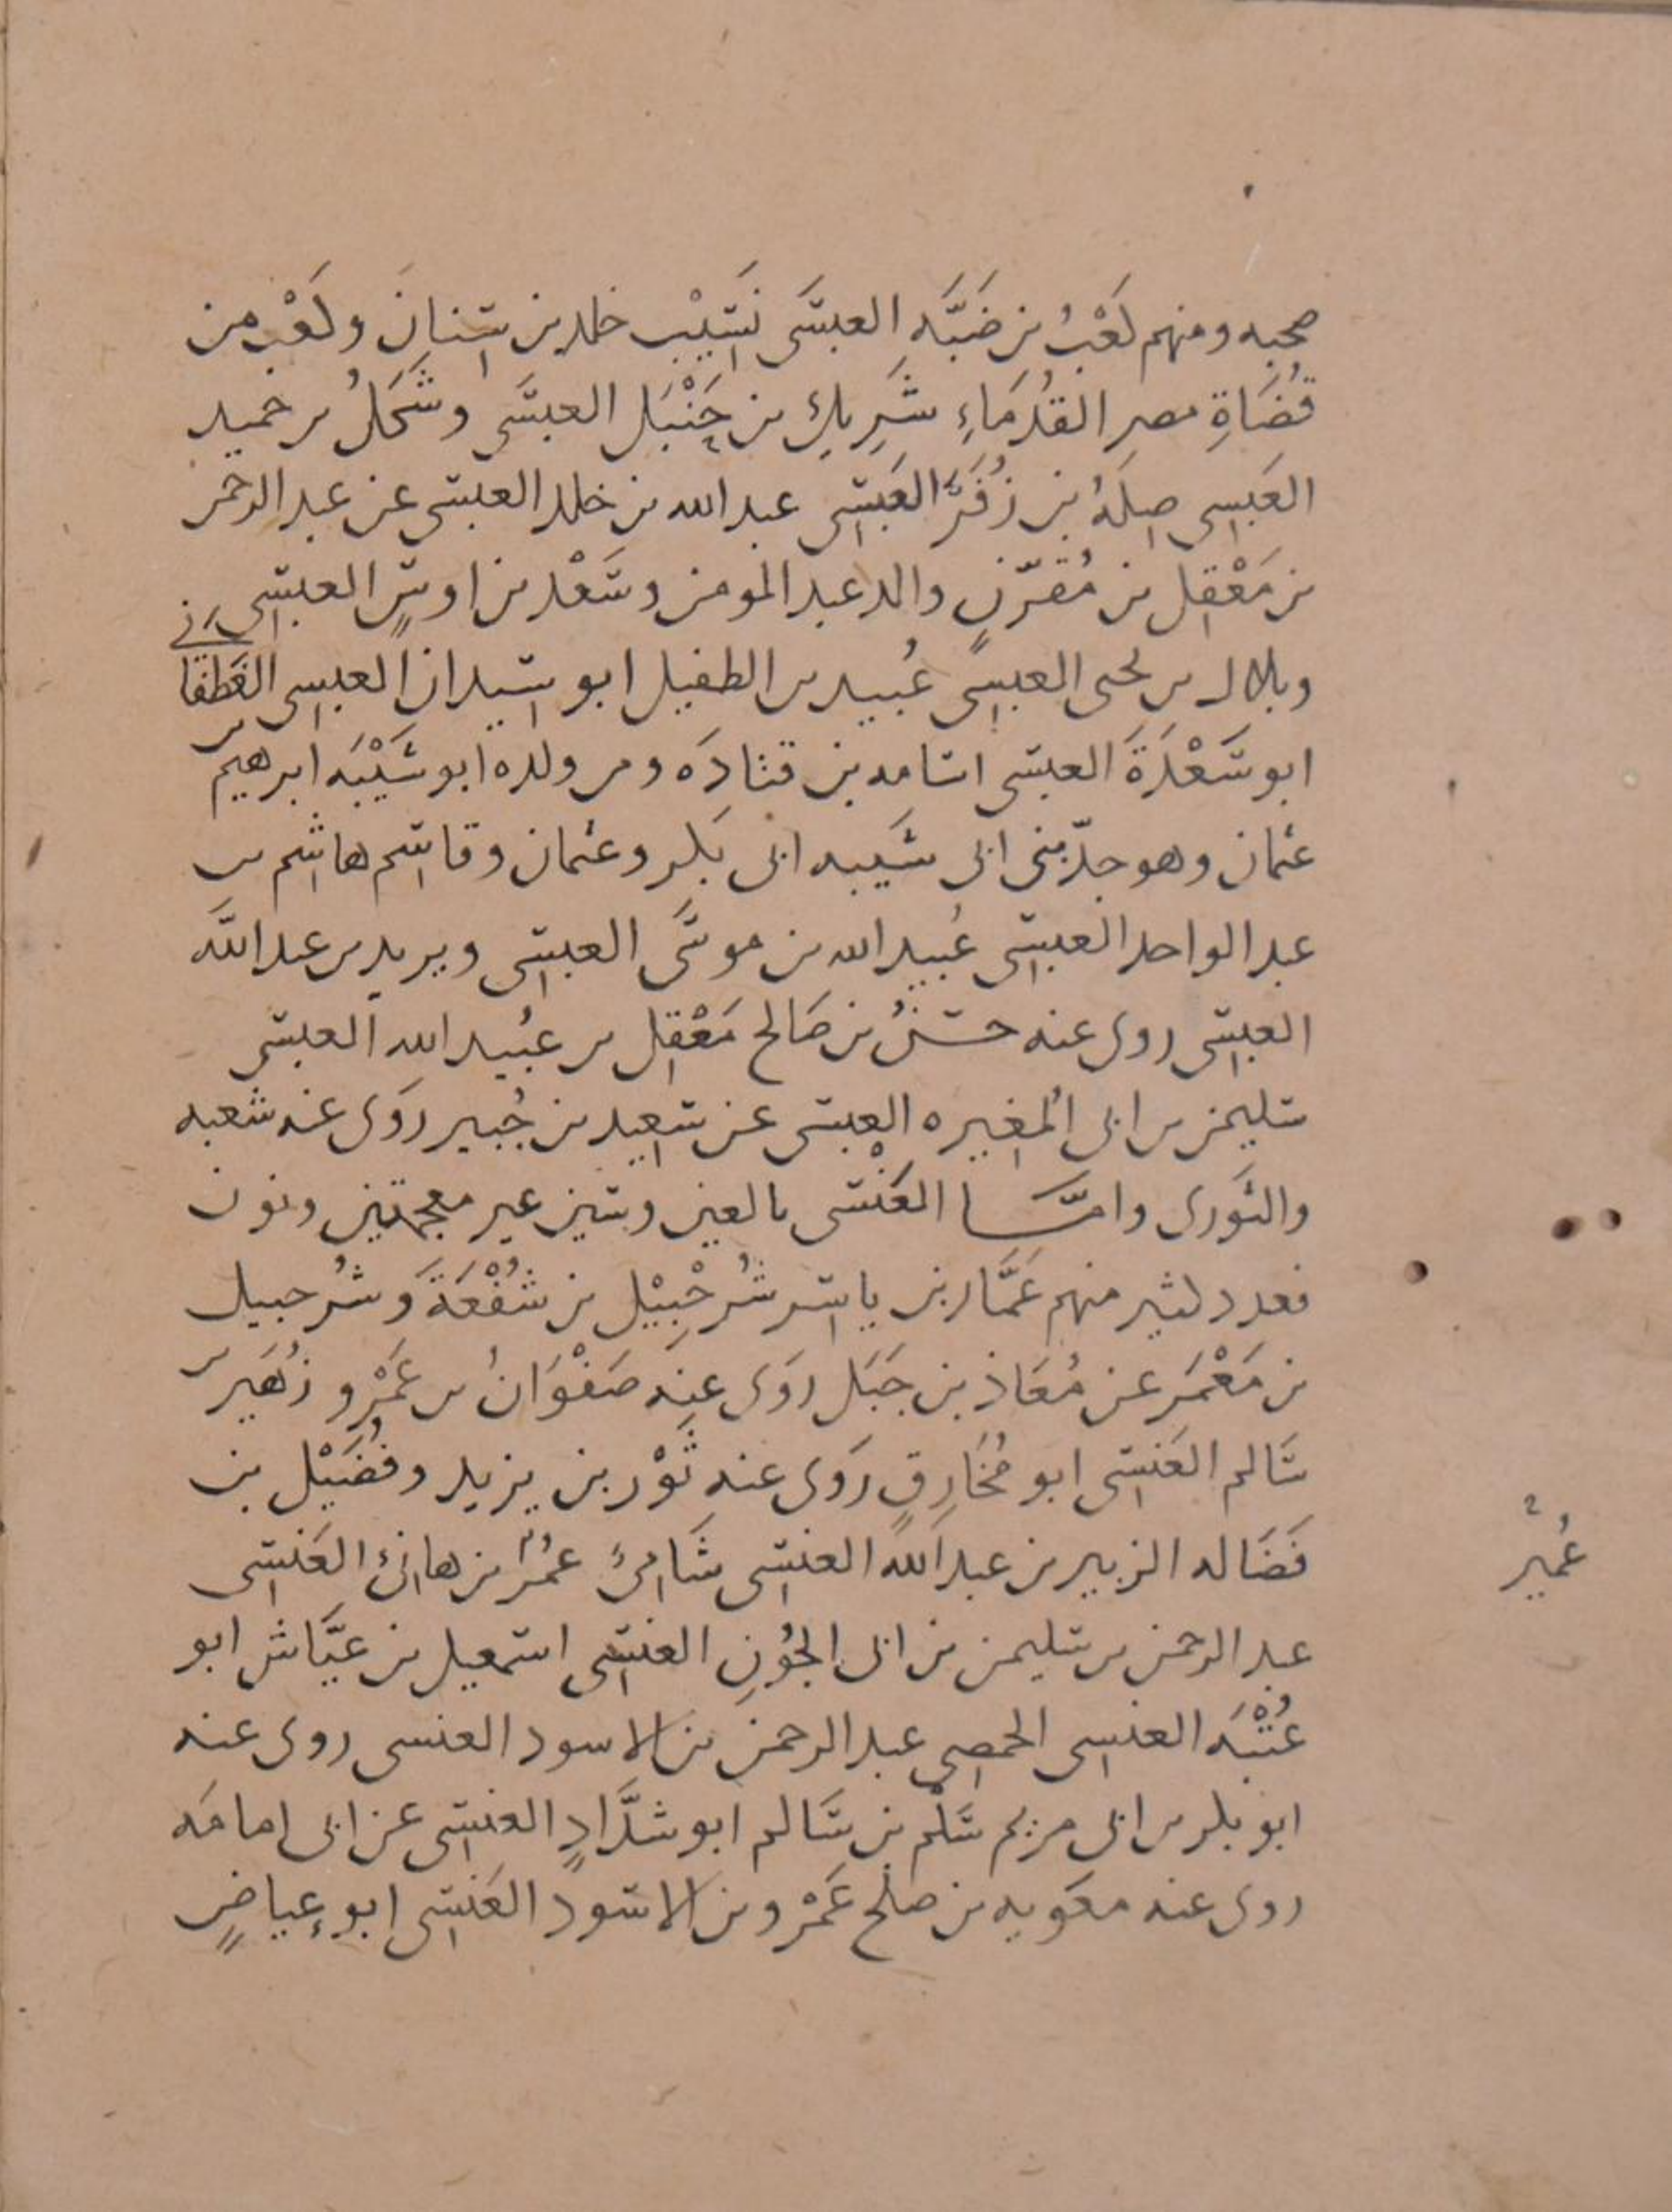 صحبه ومنهم كَعْبُ بن ضَبَّه العبسَى نَسِيْب خلد بن سنانَ وكَعْب من
قُضَاةِ مصر القُدمَاءِ شَرِيكِ بن حَنْبَل العبسَى وشَكَلُ بن حميد
العَبسِى صِلَةُ بن زُفَرَ العَبسِى عبد الله بن خلد العبسى عن عبد الرحمن
بن مَعْقِل بن مُقرّنٍ والد عبد المومن وسَعْد بن اوسٍ العبسِى
وبلال بن يحى العبسِى عُبيد بن الطفيل ابو سيدان العبسِى الغَطفانى
ابو سَعْدَةَ العبسى اسامه بن قتادَه ومن ولده ابو شَيْبَه ابرهيم بن
عثمان وهو جدّ بنى ابى شَيبه ابى بَكر وعثمان وقاسِم هاشم بن
عبد الواحد العبسِى عُبيد الله بن موسَى العبسِى ويزيد بن عبد اللَّه
العبسِى روى عنه حسنُ بن صَالح مَعْقِل بن عبُيد الله العبسى
سليمن بن ابى المغيره العبسى عن سعِيد بن جُبير روَى عنه شعبه
والثَورى وامَّا العَنْسى بالعين وسين غير معجمتين ونون
فعدد كثير منهم عَمَّار بن ياسِر شُرحْبِيْل بن شُفْعَةَ وشُرحبيل
بن مَعْمَر عن مُعَاذ بن جَبَل روَى عنه صَفْوَانُ بن عَمْرٍو زُهَير بن
سَالم العَنسِى ابو مُخَارِقٍ روَى عنه ثَوْر بن يزيد وفُضَيْل بن
فَضَاله الزبير بن عبد اللَّه العنسِى شَامىٌّ عمُر بن هانئ العَنسِى
عُمير
عبد الرحمن بن سليمن بن ابى الجُونِ العنسِى اسمعيل بن عيَّاش ابو
عُتْبَه العنسِى الحمصِى عبد الرحمن بن الاسود العنسى روى عنه
ابو بكر بن ابى مريم سَلْم بن سَالم ابو شدَّادٍ العنسِى عن ابى امامَه
روى عنه معَويه بن صلح عَمْرو بن الاسَود العَنسِى ابو عِياضٍ